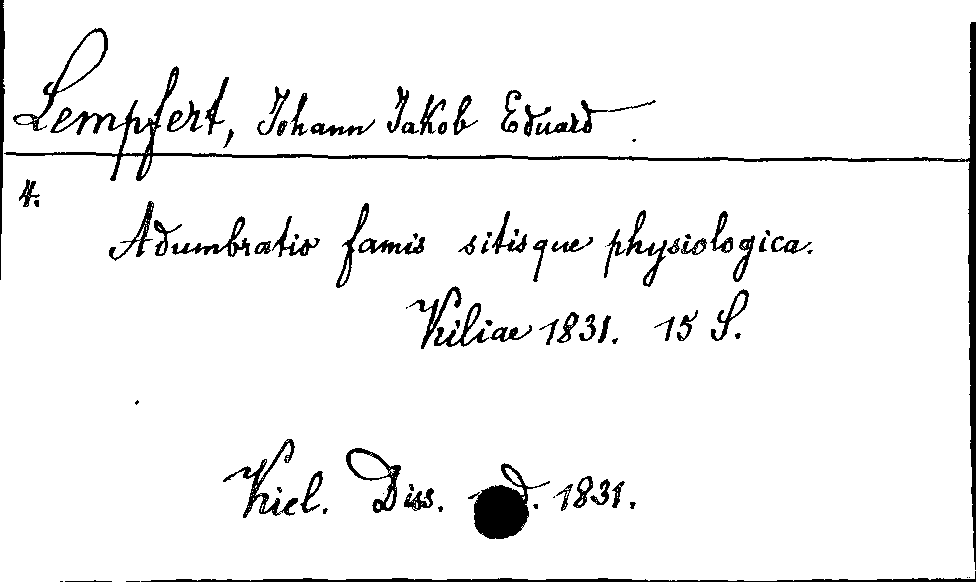 Lempfert, Johann Jakob Eduard
4.
Adumbratio famis sitisque physiologica.
Kiliae 1831. 15 S.
Kiel. Diss. 1831.